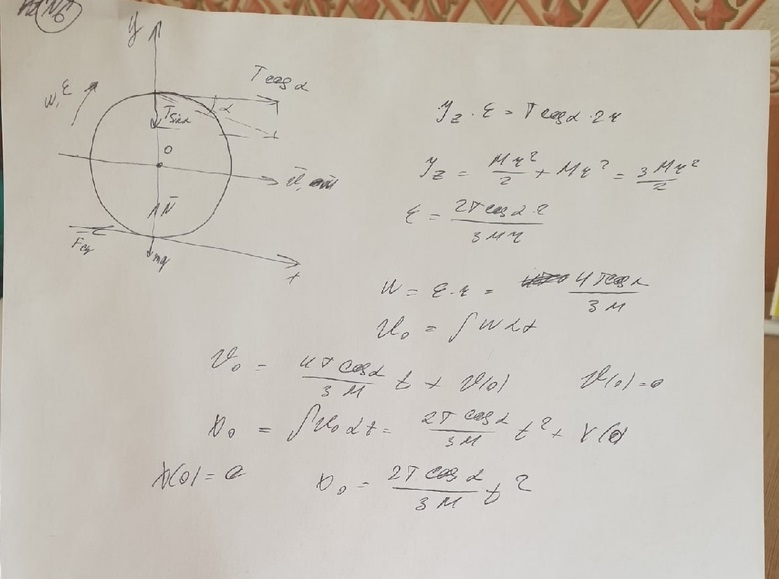 №6
y
T cos α
α
ω, ε
T sin α
O
N
Fсц
mg
x
J_z · ε = T cos α · 2r
J_z = Mr²/2 + Mr² = 3Mr²/2
ε = 2T cos α · 2/3Mr
W = ε · r = 4T cos α/3M
V₀ = ∫ W dt
V₀ = 4T cos α/3M t + V(0) V(0) = 0
x₀ = ∫ V₀ dt = 2T cos α/3M t² + x(0)
x(0) = 0 x₀ = 2T cos α/3M t²